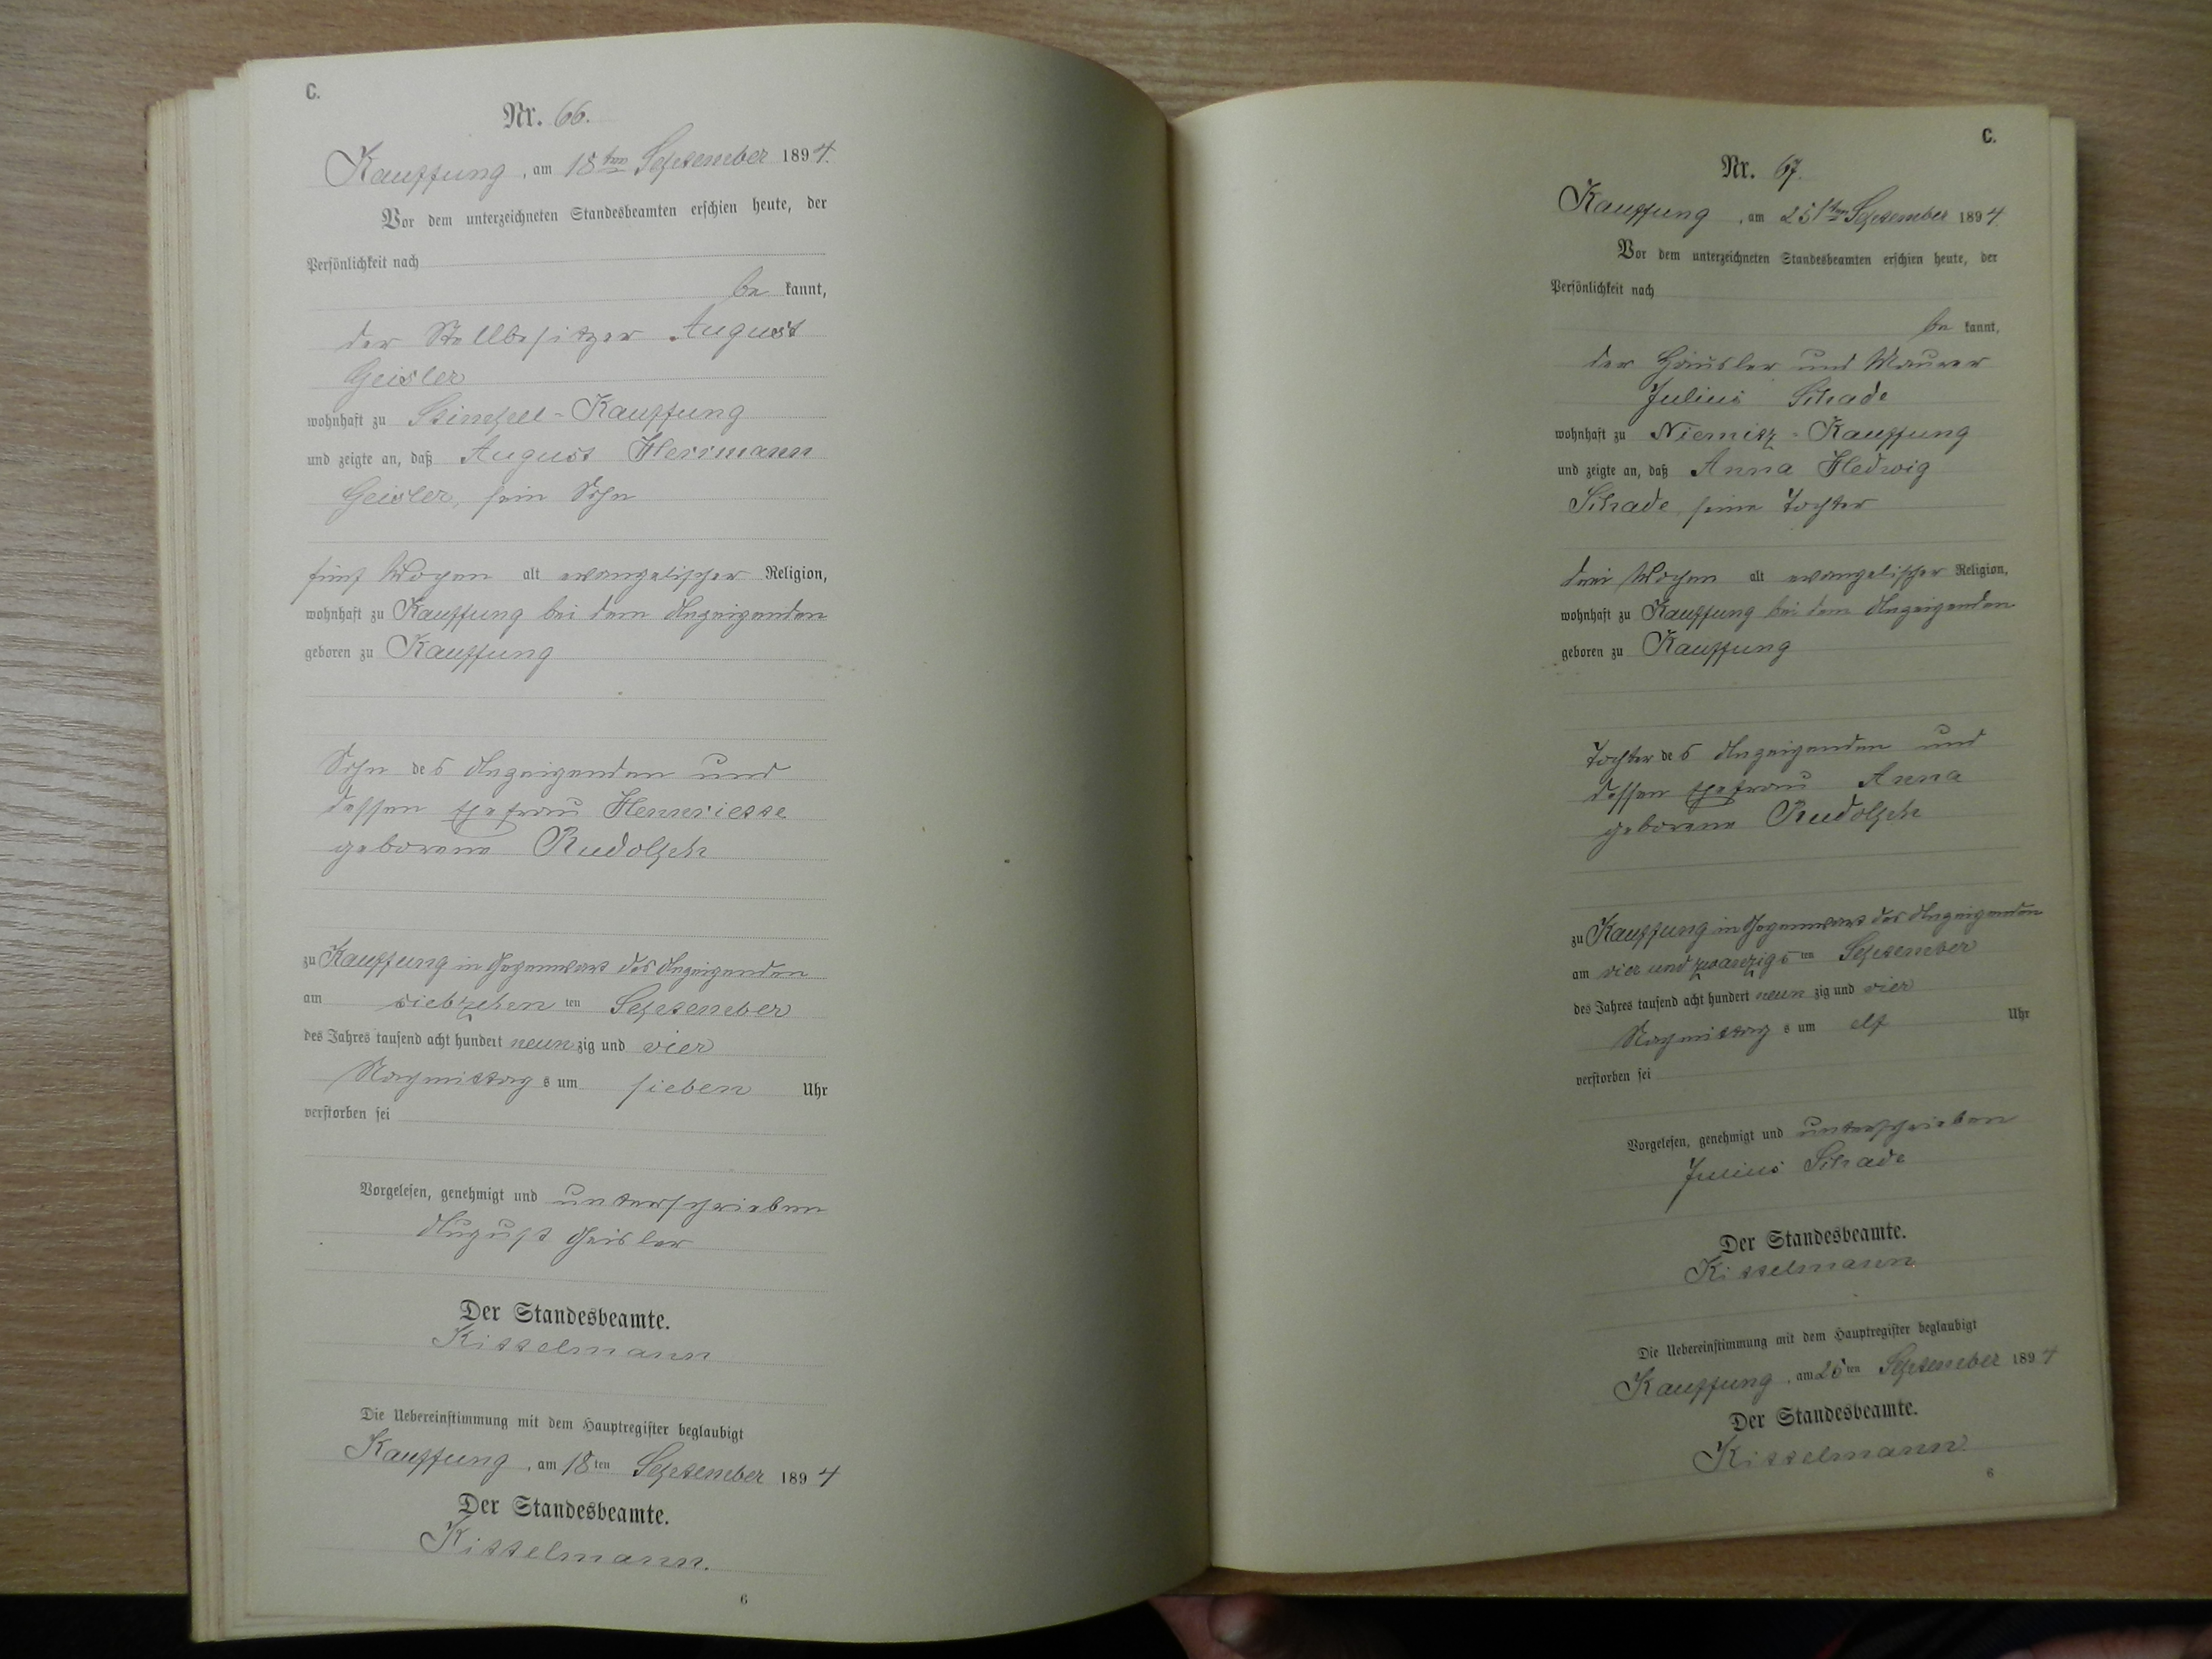 C.
Nr. 66.
Kauffung, am 18ten September 1894.
Vor dem unterzeichneten Standesbeamten erschien heute, der
Persönlichkeit nach
be kannt,
der Stellbesitzer August
Geisler
wohnhaft zu Stimpel-Kauffung
und zeigte an, daß August Herrmann
Geisler, sein Sohn
fünf Wochen alt evangelischer Religion,
wohnhaft zu Kauffung bei dem Anzeigenden
geboren zu Kauffung
Sohn des Anzeigenden und
dessen Ehefrau Henriette
geborene Rudolph
zu Kauffung in Gegenwart des Anzeigenden
am siebzehen ten September
des Jahres tausend acht hundert neun zig und vier
Nachmittag s um sieben Uhr
verstorben sei
Vorgelesen, genehmigt und unterschrieben
August Geisler
Der Standesbeamte.
Kisselmann
Die Uebereinstimmung mit dem Hauptregister beglaubigt
Kauffung, am 18ten September 1894
Der Standesbeamte.
Kisselmann.
6
C.
Nr. 67.
Kauffung, am 25ten September 1894
Vor dem unterzeichneten Standesbeamten erschien heute, der
Persönlichkeit nach
be kannt,
der Häusler und Maurer
Julius Schade
wohnhaft zu Niemitz-Kauffung
und zeigte an, daß Anna Hedwig
Schade, seine Tochter
drei Wochen alt evangelischer Religion,
wohnhaft zu Kauffung bei dem Anzeigenden
geboren zu Kauffung
Tochter des Anzeigenden und
dessen Ehefrau Anna
geborene Rudolph
zu Kauffung in Gegenwart des Anzeigenden
am vier und zwanzigs ten September
des Jahres tausend acht hundert neun zig und vier
Nachmittag s um elf Uhr
verstorben sei
Vorgelesen, genehmigt und unterschrieben
Julius Schade
Der Standesbeamte.
Kisselmann
Die Uebereinstimmung mit dem Hauptregister beglaubigt
Kauffung, am 25ten September 1894
Der Standesbeamte.
Kisselmann
6